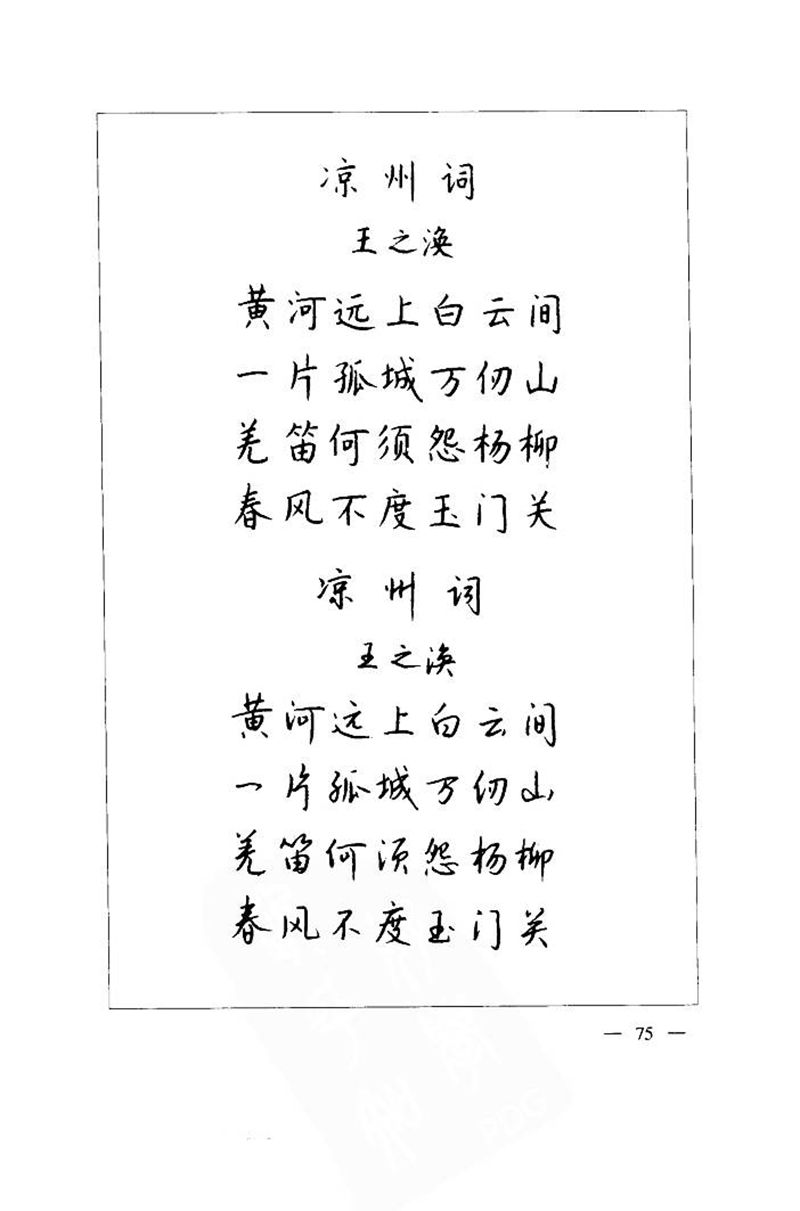 凉州词
王之涣
黄河远上白云间
一片孤城万仞山
羌笛何须怨杨柳
春风不度玉门关
凉州词
王之涣
黄河远上白云间
一片孤城万仞山
羌笛何须怨杨柳
春风不度玉门关
— 75 —
PDG